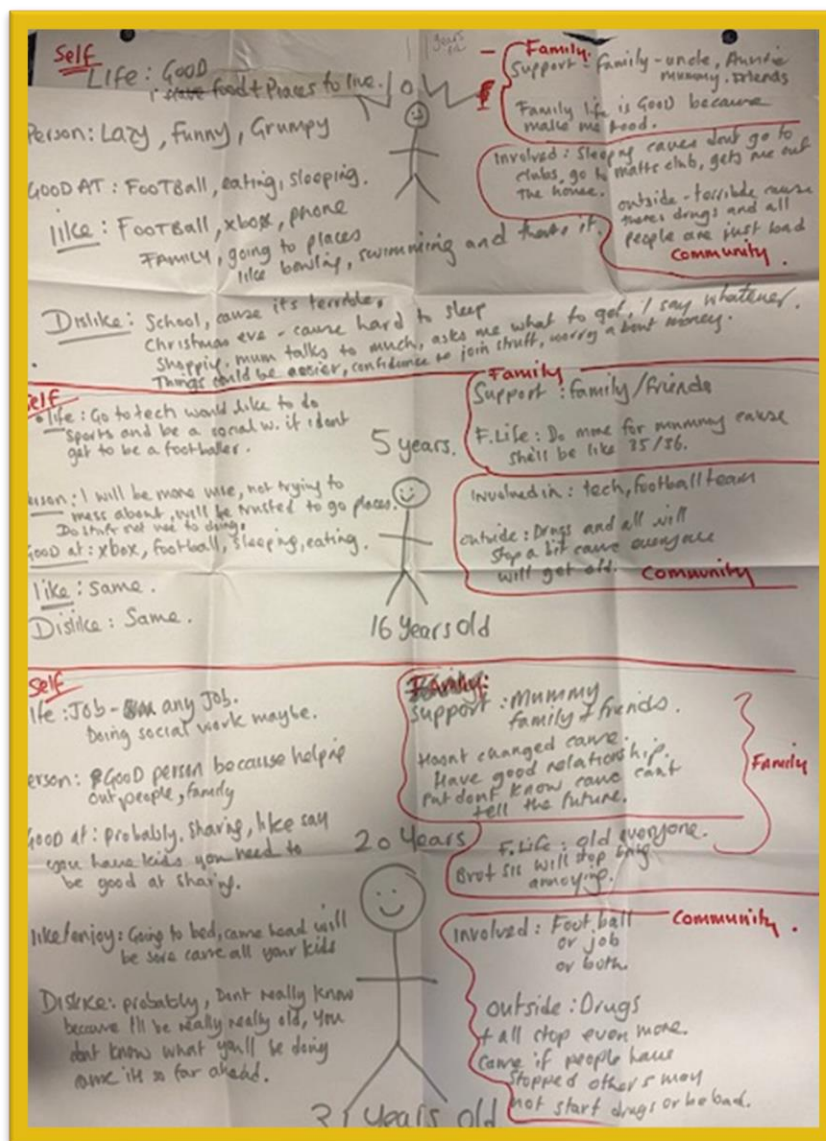 Self
Life: GOOD
food + Places to live.
Person: Lazy, Funny, Grumpy
GOOD AT: FOOTBall, eating, sleeping.
like: FOOTBall, xbox, phone
FAMILY, going to places
like bowling, swimming and thats it.
Dislike: School, cause its terrible.
Christmas eve - cause hard to sleep
Shopping. mum talks to much, asks me what to get, I say whatever.
Things could be easier, confidence to join stuff, worry about money.
Family:
Support: family - uncle, Auntie
mummy. friends
Family life is GOOD because
make me food.
Involved: Sleeping cause dont go to
clubs, go to matts club, gets me out
the house.
outside - terrible cause
theres drugs and all
people are just bad
Community.
Self
life: Go to tech would like to do
sports and be a social w. if i dont
get to be a footballer.
Person: I will be more wise, not trying to
mess about, will be trusted to go places.
Do stuff not use to doing.
Good at: xbox, football, sleeping, eating.
like: same.
Dislike: Same.
5 years.
16 years old
Family
Support: family/friends
F.Life: Do more for mummy cause
she'll be like 35/36.
Involved in: tech, football team
outside: Drugs and all will
stop a bit cause everyone
will get old.
Community
Self
life: JOB - any JOB.
Doing social work maybe.
Person: GOOD person because helping
out people, family
Good at: probably. Sharing, like say
you have kids you need to
be good at sharing.
like/enjoy: Going to bed, cause head will
be sore cause all your kids
Dislike: probably, Dont really know
because I'll be really really old, you
dont know what you'll be doing
cause its so far ahead.
20 years
years old
Family:
Support: Mummy
family + friends.
Hasnt changed cause
Have good relationship.
But dont know cause cant
tell the future.
Family
F.Life: old everyone.
Bro + sis will stop being
annoying.
Community.
Involved: Football
or job
or both.
outside: Drugs
+ all stop even more.
Cause if people have
stopped others may
not start drugs or be bad.